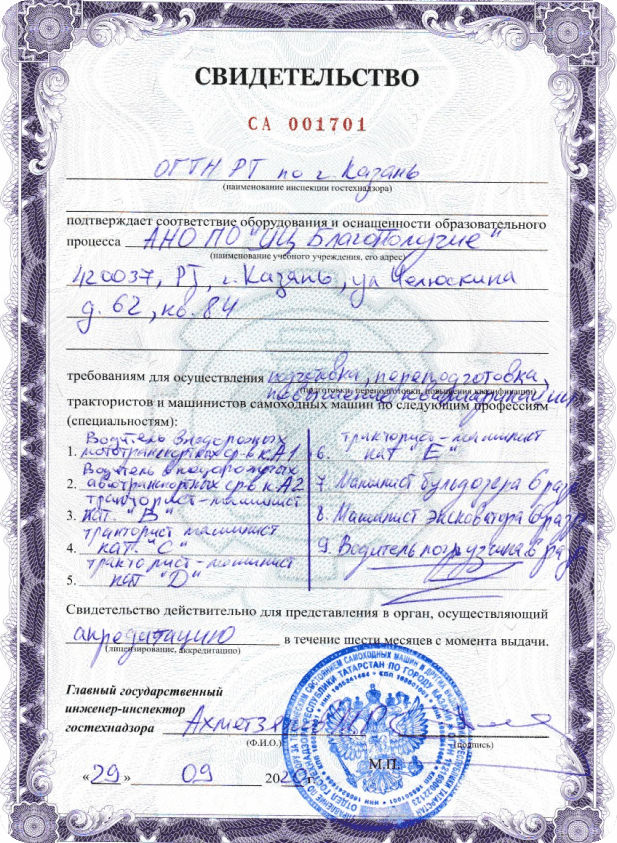 СВИДЕТЕЛЬСТВО
СА 001701
ОГТН РТ по г. Казань
(наименование инспекции гостехнадзора)
подтверждает соответствие оборудования и оснащенности образовательного
процесса АНО ПО "УЦ Благополучие"
(наименование учебного учреждения, его адрес)
420037, РТ, г. Казань, ул Челюскина
д. 62, кв. 84
требованиям для осуществления подготовка, переподготовка,
(подготовки, переподготовки, повышения квалификации)
повышение квалификации
трактористов и машинистов самоходных машин по следующим профессиям
(специальностям):
1. Водитель внедорожных мототранспортных ср-в к А1
2. Водитель внедорожных автотранспортных ср-в к А2
3. тракторист-машинист кат. "В"
4. тракторист машинист кат. "С"
5. тракторист-машинист кат "D"
6. тракторист-машинист кат "Е"
7. Машинист бульдозера 6 разр
8. Машинист экскаватора 6 разр
9. Водитель погрузчика 6 разр
Свидетельство действительно для представления в орган, осуществляющий
акредитацию в течение шести месяцев с момента выдачи.
(лицензирование, аккредитацию)
Главный государственный
инженер-инспектор
гостехнадзора
(Ф.И.О.) (подпись)
М.П.
«29» 09 20